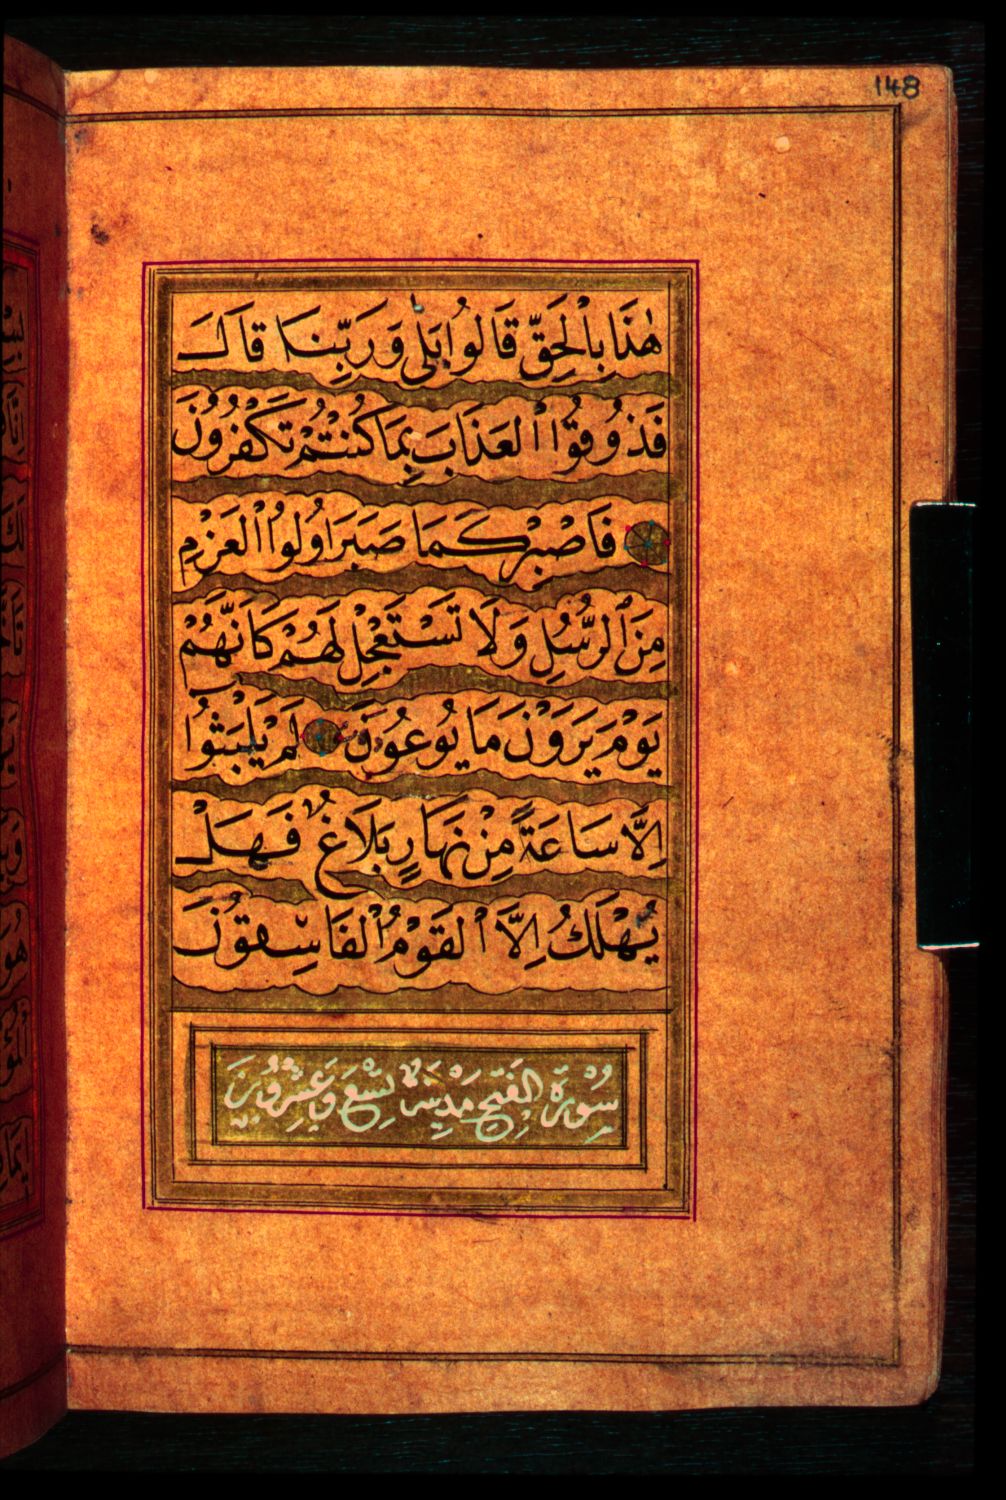 148
هٰذَا بِالْحَقِّ قَالُوا بَلٰى وَرَبِّنَا قَالَ
فَذُوقُوا الْعَذَابَ بِمَا كُنْتُمْ تَكْفُرُونَ
فَاصْبِرْ كَمَا صَبَرَ اُولُوا الْعَزْمِ
مِنَ الرُّسُلِ وَلَا تَسْتَعْجِلْ لَهُمْ كَاَنَّهُمْ
يَوْمَ يَرَوْنَ مَا يُوعَدُونَ لَمْ يَلْبَثُوا
اِلَّا سَاعَةً مِنْ نَهَارٍ بَلَاغٌ فَهَلْ
يُهْلَكُ اِلَّا الْقَوْمُ الْفَاسِقُونَ
سُورَةُ الْفَتْحِ مَدَنِيَّةٌ تِسْعَ وَعِشْرُونَ